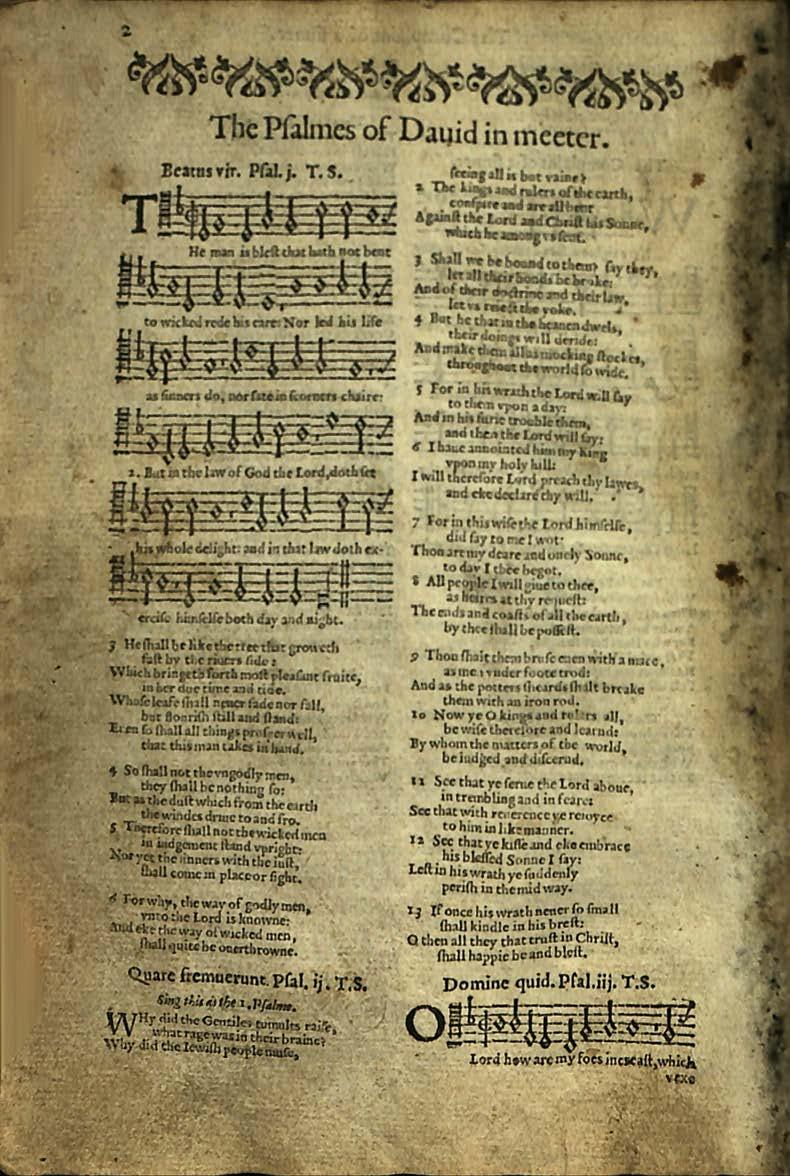 2
The Pſalmes of Dauid in meeter.
Beatus vir. Pſal. j. T. S.
THe man is bleſt that hath not bent
to wicked rede his eare: Nor led his life
as ſinners do, nor ſate in ſcorners chaire:
2. But in the law of God the Lord, doth ſet
his whole delight: and in that law doth ex-
erciſe himſelfe both day and night.
3 He ſhall be like the tree that groweth
faſt by the riuers ſide:
Which bringeth forth moſt pleaſant fruite,
in her due time and tide.
Whoſe leafe ſhall neuer fade nor fall,
but flouriſh ſtill and ſtand:
Euen ſo ſhall all things proſper well,
that this man takes in hand.
4 So ſhall not the vngodly men,
they ſhall be nothing ſo:
But as the duſt which from the earth
the windes driue to and fro.
5 Therefore ſhall not the wicked men
in iudgement ſtand vpright:
Nor yet the ſinners with the iuſt,
ſhall come in place or ſight.
6 For why, the way of godly men,
vnto the Lord is knowne:
And eke the way of wicked men,
ſhall quite be ouerthrowne.
Quare fremuerunt. Pſal. ij. T. S.
Sing this as the 1. Pſalme.
WHy did the Gentiles tumults raiſe,
what rage was in their braine?
Why did the Iewiſh people muſe,
ſeeing all is but vaine?
2 The kings and rulers of the earth,
conſpire and are all bent
Againſt the Lord and Chriſt his Sonne,
which he among vs ſent.
3 Shall we be bound to them? ſay they,
let all their bonds be broke:
And of their doctrine and their law,
let vs reiect the yoke.
4 But he that in the heauen dwels,
their doings will deride:
And make them all as mocking ſtockes,
throughout the world ſo wide.
5 For in his wrath the Lord will ſay
to them vpon a day:
And in his furie trouble them,
and then the Lord will ſay:
6 I haue annointed him my King
vpon my holy hill:
I will therefore Lord preach thy lawes,
and eke declare thy will.
7 For in this wiſe the Lord himſelfe,
did ſay to me I wot:
Thou art my deare and onely Sonne,
to day I thee begot.
8 All people I will giue to thee,
as heires at thy requeſt:
The ends and coaſts of all the earth,
by thee ſhall be poſſeſt.
9 Thou ſhalt them bruſe euen with a mace,
as men vnder foote trod:
And as the potters ſheards ſhalt breake
them with an iron rod.
10 Now ye O kings and rulers all,
be wiſe therefore and learnd:
By whom the matters of the world,
be iudged and diſcernd.
11 See that ye ſerue the Lord aboue,
in trembling and in feare:
See that with reuerence ye reioyce
to him in like manner.
12 See that ye kiſſe and eke embrace
his bleſſed Sonne I ſay:
Leſt in his wrath ye ſuddenly
periſh in the mid way.
13 If once his wrath neuer ſo ſmall
ſhall kindle in his breſt:
O then all they that truſt in Chriſt,
ſhall happie be and bleſt.
Domine quid. Pſal. iij. T. S.
O Lord how are my foes increaſt, which
vexe